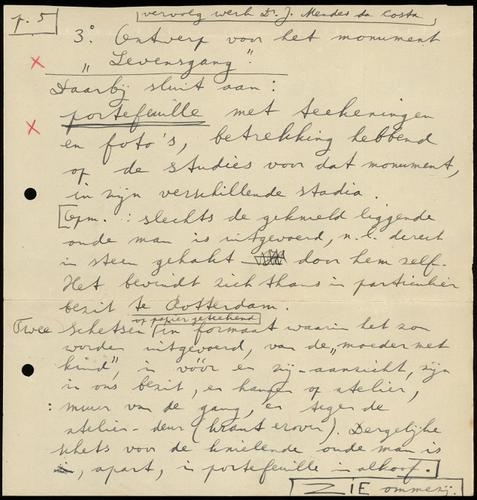 p. 5
vervolg werk Dr. J. Mendes da Costa,
3° Ontwerp voor het monument
„Levensgang".
Daarbij sluit aan:
portefeuille met teekeningen
en foto's, betrekking hebbend
op de studies voor dat monument,
in zijn verschillende stadia.
Opm.: slechts de geknield liggende
oude man is uitgevoerd, n.l. direct
in steen gehakt door hem zelf.
Het bevindt zich thans in particulier
bezit te Rotterdam.
op papier geteekend
Twee schetsen in formaat waarin het zou
worden uitgevoerd, van de „moeder met
kind", in vóór en zij-aanzicht, zijn
in ons bezit, en hangen op atelier,
: muur van de gang, en tegen de
atelier-deur (krant erover). Dergelijke
schets voor de knielende oude man is
apart, in portefeuille in alkoof.
ZIE ommezij.